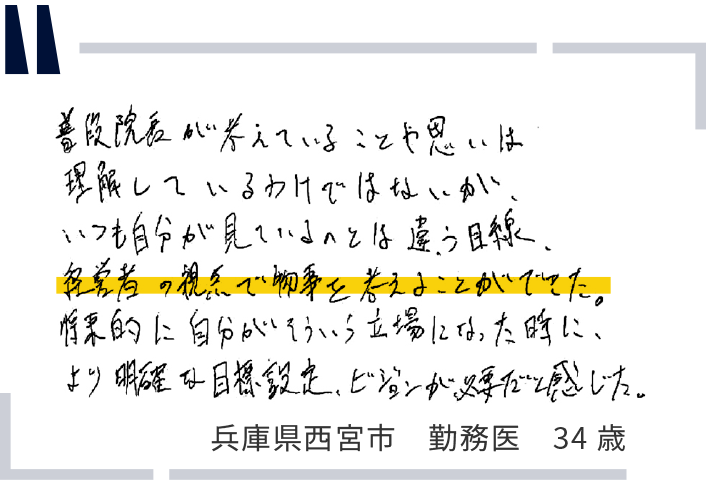 普段院長が考えていることや思いは
理解しているわけではないが、
いつも自分が見ているのとは違う目線、
経営者の視点で物事を考えることができた。
将来的に自分がそういう立場になった時に、
より明確な目標設定、ビジョンが必要だと感じた。
兵庫県西宮市 勤務医 34歳